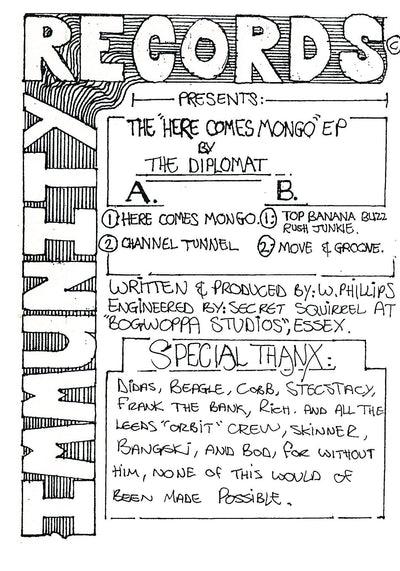 RECORDS©
IMMUNITY
PRESENTS:
THE "HERE COMES MONGO" EP
BY
THE DIPLOMAT
A. B.
① HERE COMES MONGO. ①: TOP BANANA BUZZ
RUSH JUNKIE.
② CHANNEL TUNNEL ②: MOVE & GROOVE.
WRITTEN & PRODUCED BY: W. PHILLIPS
ENGINEERED BY: SECRET SQUIRREL AT
"BOGWOPPA STUDIOS", ESSEX.
SPECIAL THANX:
DIDAS, BEAGLE, COBB, STECSTACY,
FRANK THE BANK, RICH. AND ALL THE
LEEDS "ORBIT" CREW, SKINNER,
BANGSKI, AND BOD, FOR WITHOUT
HIM, NONE OF THIS WOULD OF
BEEN MADE POSSIBLE.